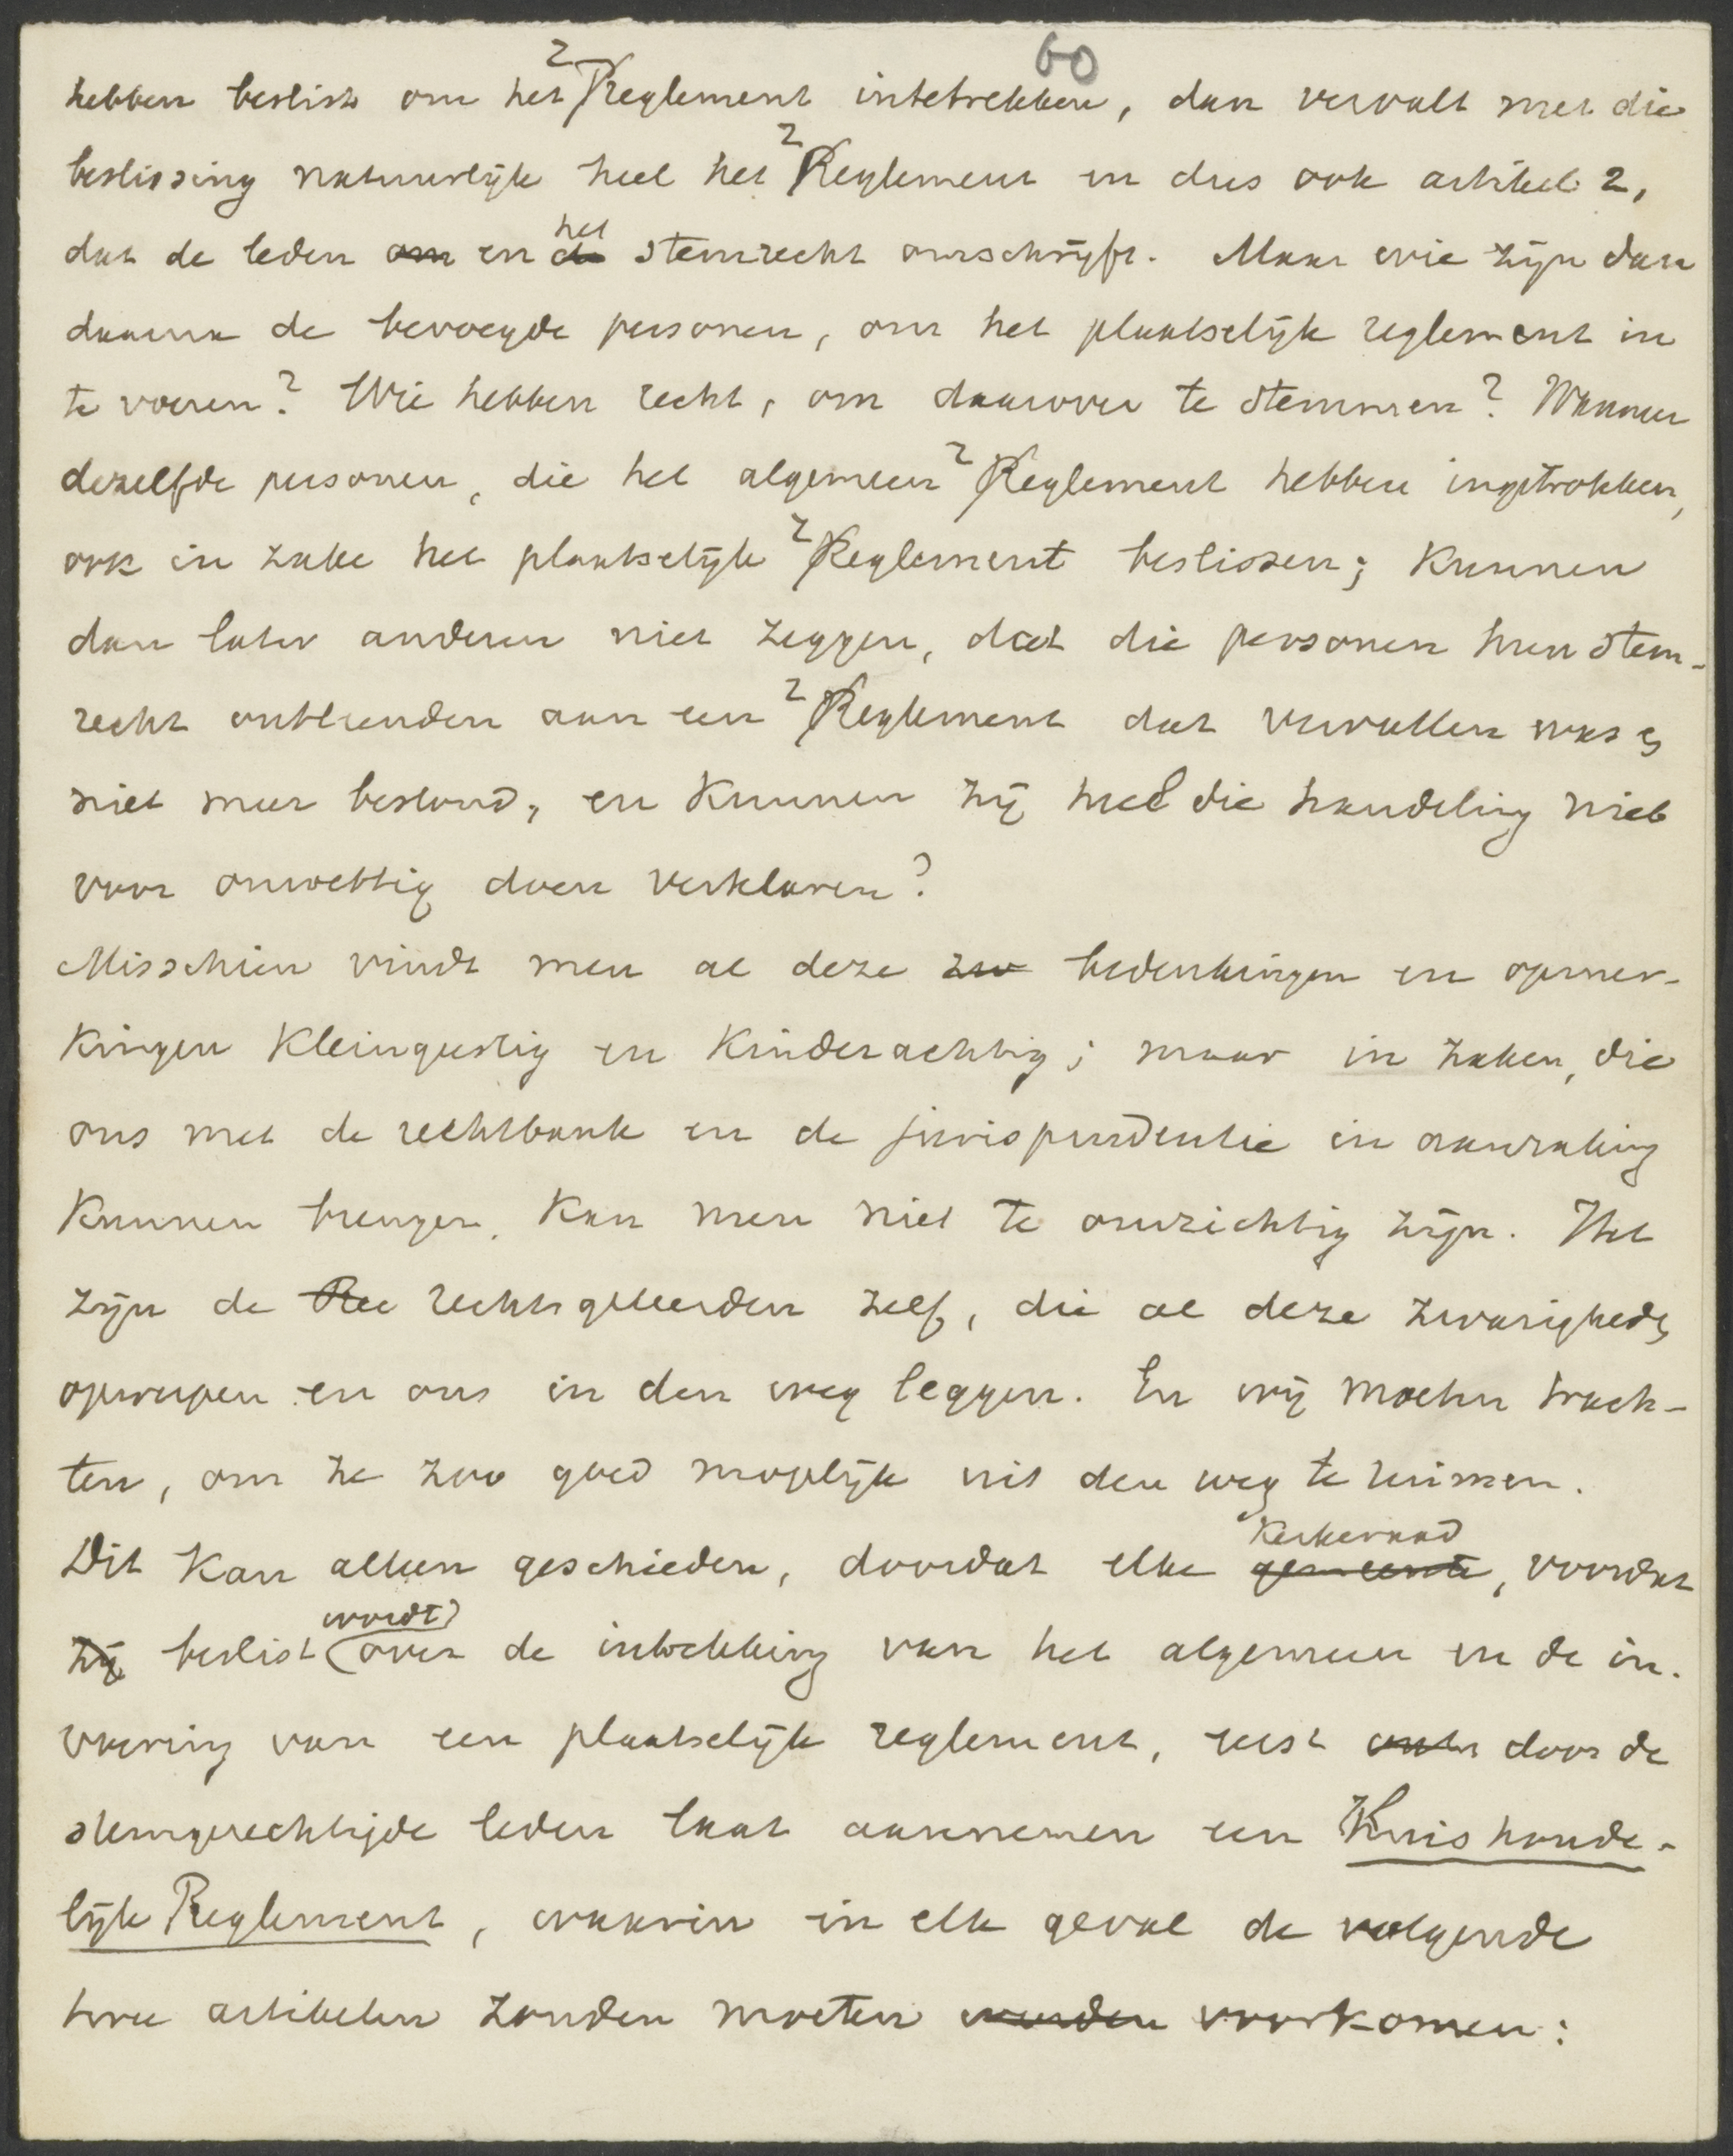 60
hebben beslist om het reglement intetrekken, dan vervalt met die
beslissing natuurlijk heel het reglement en dus ook artikel 2,
dat de leden om en de het stemrecht omschrijft. Maar wie zijn dan
daarna de bevoegde personen, om het plaatselijk reglement in
te voeren? Wie hebben recht, om daarover te stemmen? Wanneer
dezelfde personen, die het algemeen reglement hebben ingetrokken,
ook in zake het plaatselijk reglement beslissen; kunnen
dan later anderen niet zeggen, dat die personen hun stem-
recht ontleenden aan een reglement dat vervallen was en
niet meer bestond, en kunnen zij heel die handeling niet
voor onwettig doen verklaren?
Misschien vindt men al deze zw bedenkingen en opmer-
kingen kleingeestig en kinderachtig; maar in zaken, die
ons met de rechtbank en de jurisprudentie in aanraking
kunnen brengen, kan men niet te omzichtig zijn. Het
zijn de Re rechtsgeleerden zelf, die al deze zwarigheden
opwerpen en ons in den weg leggen. En wij moeten trach-
ten, om ze zoo goed mogelijk uit den weg te ruimen.
Dit kan alleen geschieden, doordat elke gemeente kerkeraad, voordat
zij beslist wordt over de intrekking van het algemeen en de in-
voering van een plaatselijk reglement, eerst door de
stemgerechtigde leden laat aannemen een Huishoude-
lijk Reglement, waarin in elk geval de volgende
twee artikelen zouden moeten worden voorkomen: